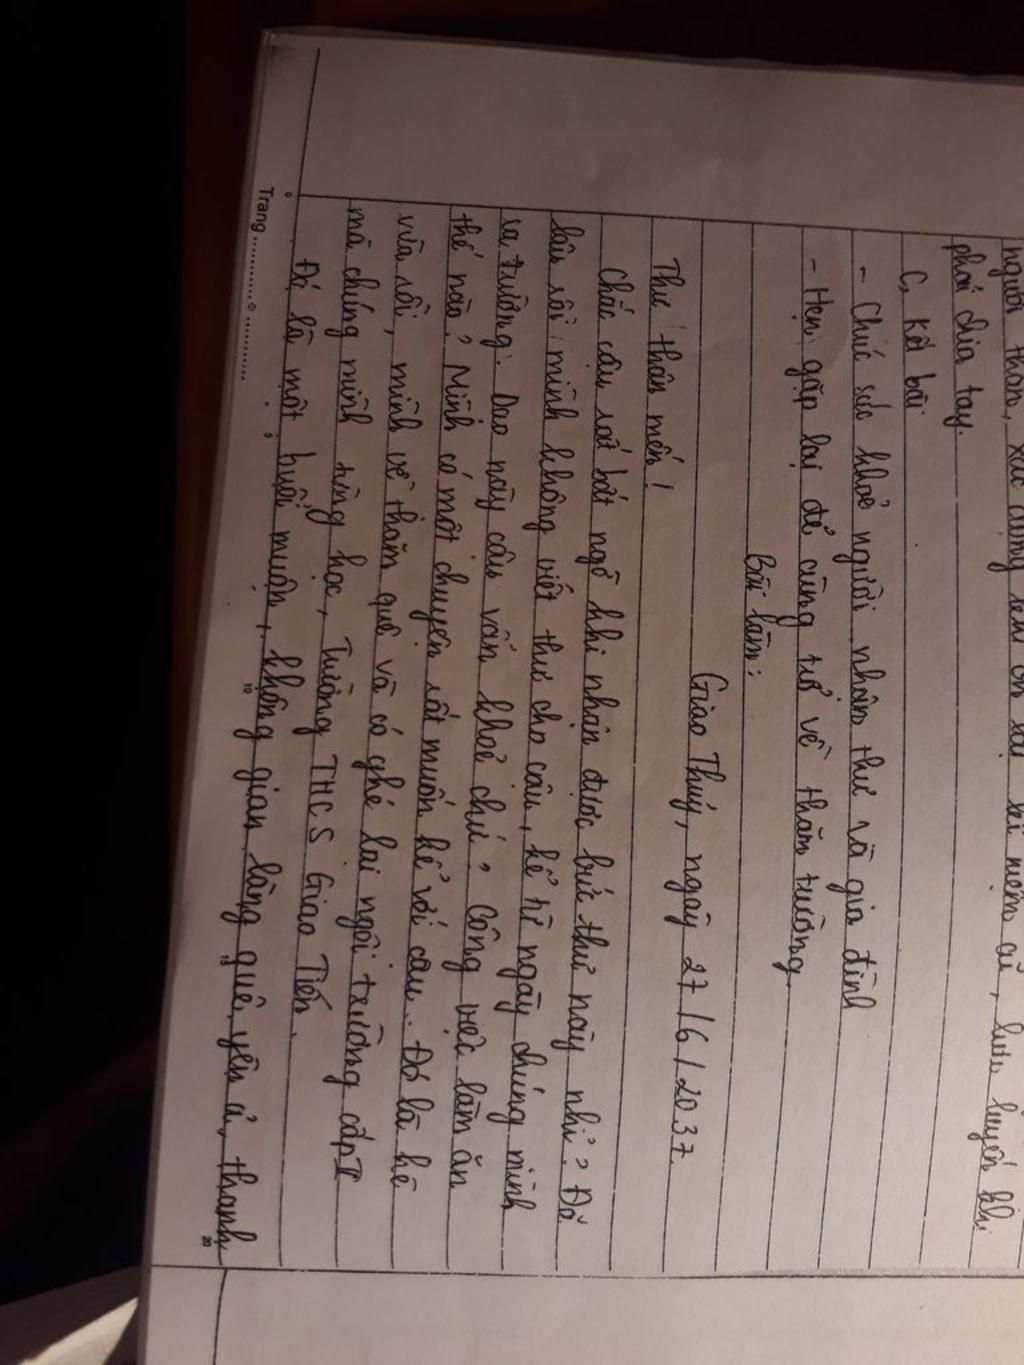 người thân, xúc động khi ôn lại kỉ niệm cũ, lưu luyến khi
phải chia tay.
C, Kết bài
- Chúc sức khoẻ người nhận thư và gia đình
- Hẹn gặp lại để cùng trở về thăm trường.
Bài làm:
Giao Thuỷ, ngày 27/6/2037
Thư thân mến!
Chắc cậu rất bất ngờ khi nhận được bức thư này nhỉ? Đã
lâu rồi mình không viết thư cho cậu, kể từ ngày chúng mình
ra trường. Dao này cậu vẫn khoẻ chứ? Công việc làm ăn
thế nào? Mình có một chuyện rất muốn kể với cậu. Đó là hè
vừa rồi, mình về thăm quê và có ghé lại ngôi trường cấp II
mà chúng mình từng học, Trường THCS Giao Tiến.
Đó là một buổi muộn, không gian làng quê yên ả, thanh
Trang
5
10
15
20